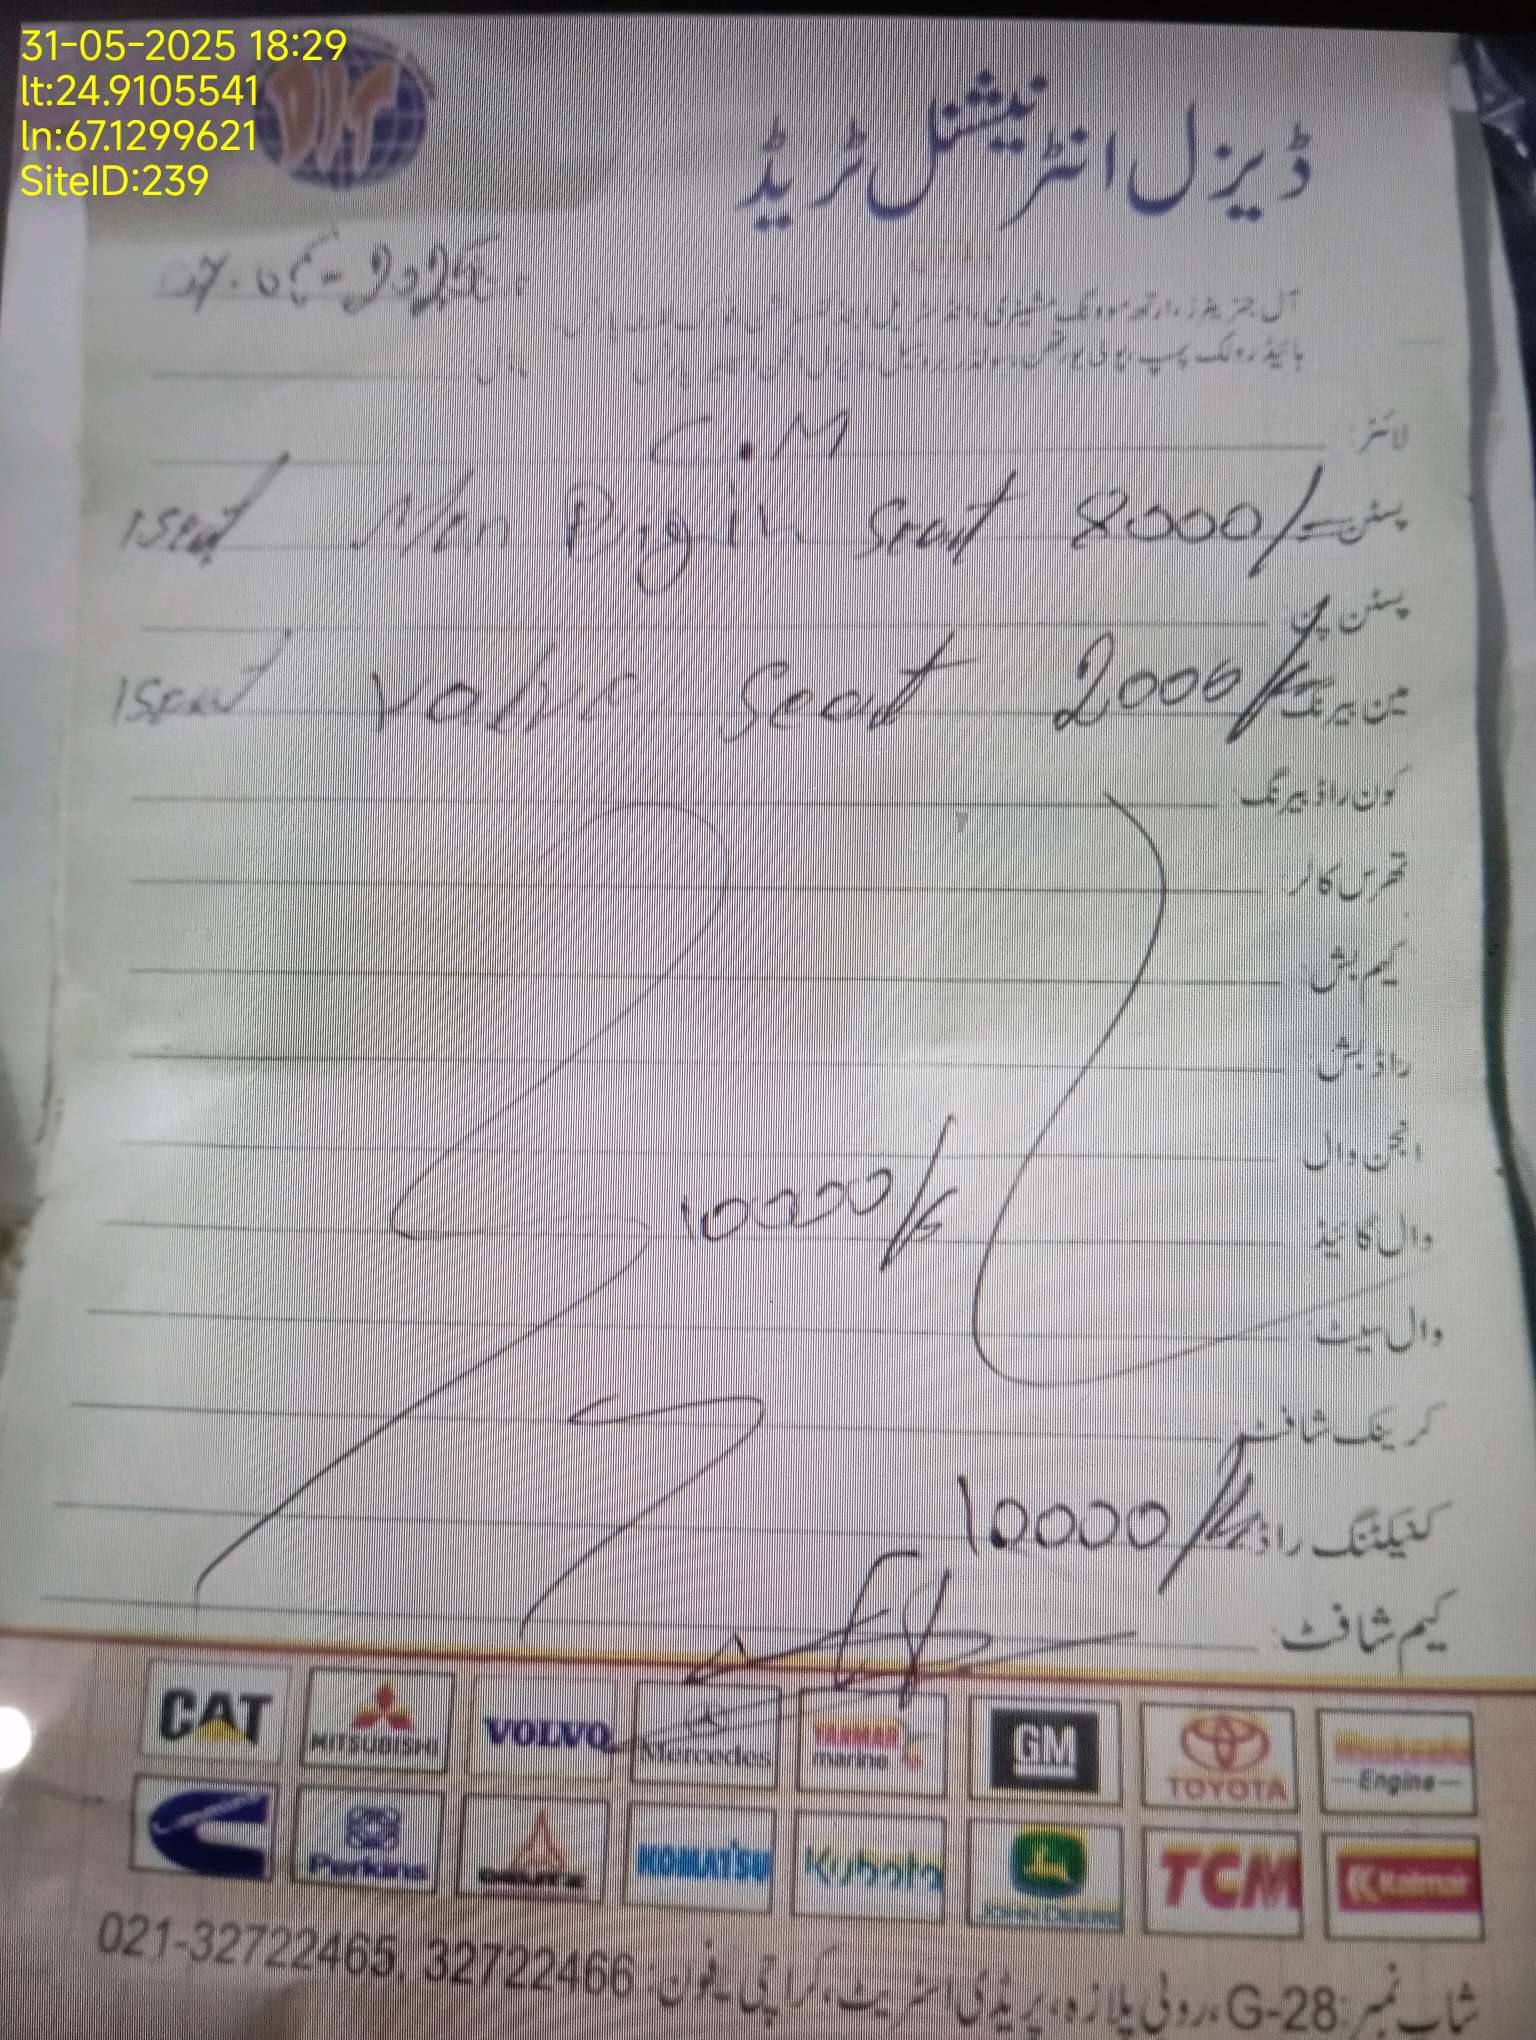 31-05-2025 18:29
lt:24.9105541
ln:67.1299621
SiteID:239
ڈیزل انٹرنیشنل ٹریڈ
2025
C.M
لائنر:
1Seat Men Seat 8000/=
پسٹن
پسٹن پن
1Seat Valve Seat 2000/=
مین بیرنگ
کون راڈ بیرنگ
تھرس کالر
کیم بش
راڈ بش
انجن وال
10000/=
وال گائیڈ
وال سیٹ
کرینک شافٹ
10000/=
کنیکٹنگ راڈ
کیم شافٹ
CAT MITSUBISHI VOLVO Mercedes YANMAR marine GM TOYOTA Engine
Perkins DEUTZ KOMATSU Kubota JOHN DEERE TCM Kalmar
021-32722465, 32722466
شاپ نمبر: G-28، کراچی۔ فون: